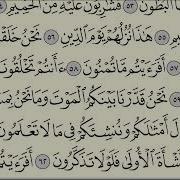 ٱلْبُطُونَ ٥٣ فَشَٰرِبُونَ عَلَيْهِ مِنَ ٱلْحَمِيمِ
٥٥ هَٰذَا نُزُلُهُمْ يَوْمَ ٱلدِّينِ ٥٦ نَحْنُ
٥٧ أَفَرَءَيْتُم مَّا تُمْنُونَ ٥٨ ءَأَنتُمْ تَخْلُقُونَ
نَحْنُ قَدَّرْنَا بَيْنَكُمُ ٱلْمَوْتَ وَمَا نَحْنُ
أَمْثَٰلَكُمْ وَنُنشِئَكُمْ فِى مَا لَا تَعْلَمُونَ
ٱلنَّشْأَةَ ٱلْأُولَىٰ فَلَوْلَا تَذَكَّرُونَ ٦٢